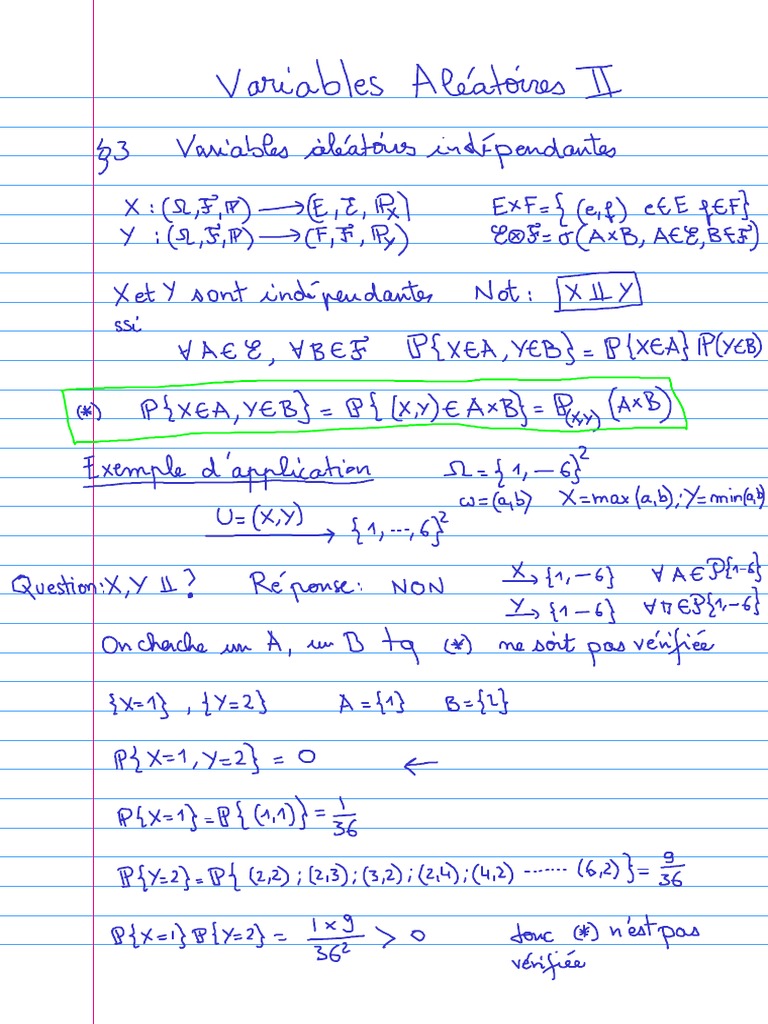 Variables Aléatoires II
§3 Variables aléatoires indépendantes
X : (Ω, ℱ, ℙ) ⟶ (E, ℰ, ℙ_X) E×F = { (e,f) e∈E f∈F}
Y : (Ω, ℱ, ℙ) ⟶ (F, ℱ, ℙ_Y) ℰ⊗ℱ = σ(A×B, A∈ℰ, B∈ℱ)
X et Y sont indépendantes Not : X ⫫ Y
ssi
∀A∈ℰ, ∀B∈ℱ ℙ{X∈A, Y∈B} = ℙ{X∈A} ℙ(Y∈B)
(*) ℙ{X∈A, Y∈B} = ℙ{ (X,Y) ∈ A×B} = ℙ_(X,Y) (A×B)
Exemple d'application Ω = {1, – 6}²
ω=(a,b) X=max(a,b); Y=min(a,b)
U = (X,Y) ⟶ {1, ..., 6}²
Question: X, Y ⫫ ? Réponse : NON X→ {1, – 6} ∀A∈𝒫{1–6}
Y→ {1 – 6} ∀Π∈𝒫{1, –6}
On cherche un A, un B tq (*) ne soit pas vérifiée
{X=1} , {Y=2} A = {1} B = {2}
ℙ{X=1, Y=2} = 0 ←
ℙ{X=1} = ℙ{(1,1)} = 1/36
ℙ{Y=2} = ℙ{ (2,2) ; (2,3) ; (3,2) ; (2,4) ; (4,2) ...... (6,2) } = 9/36
ℙ{X=1} ℙ{Y=2} = 1×9/36² > 0 donc (*) n'est pas
vérifiée